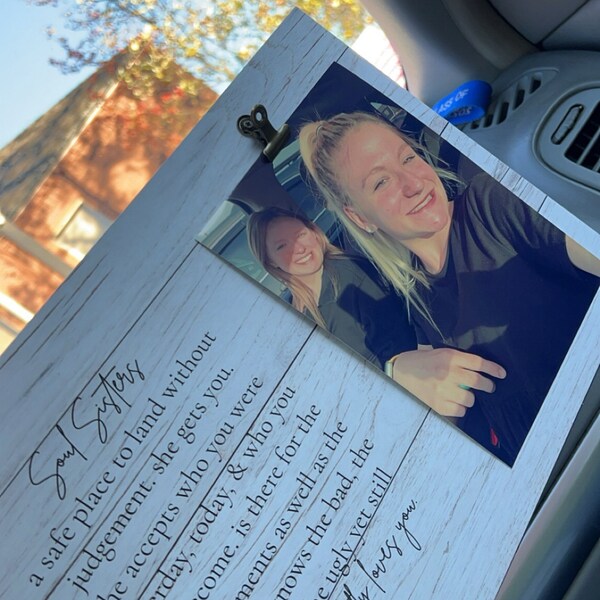 Soul Sisters
a safe place to land without
judgement. she gets you.
he accepts who you were
rday, today, & who you
come. is there for the
ments as well as the
nows the bad, the
e ugly yet still
ly loves you.